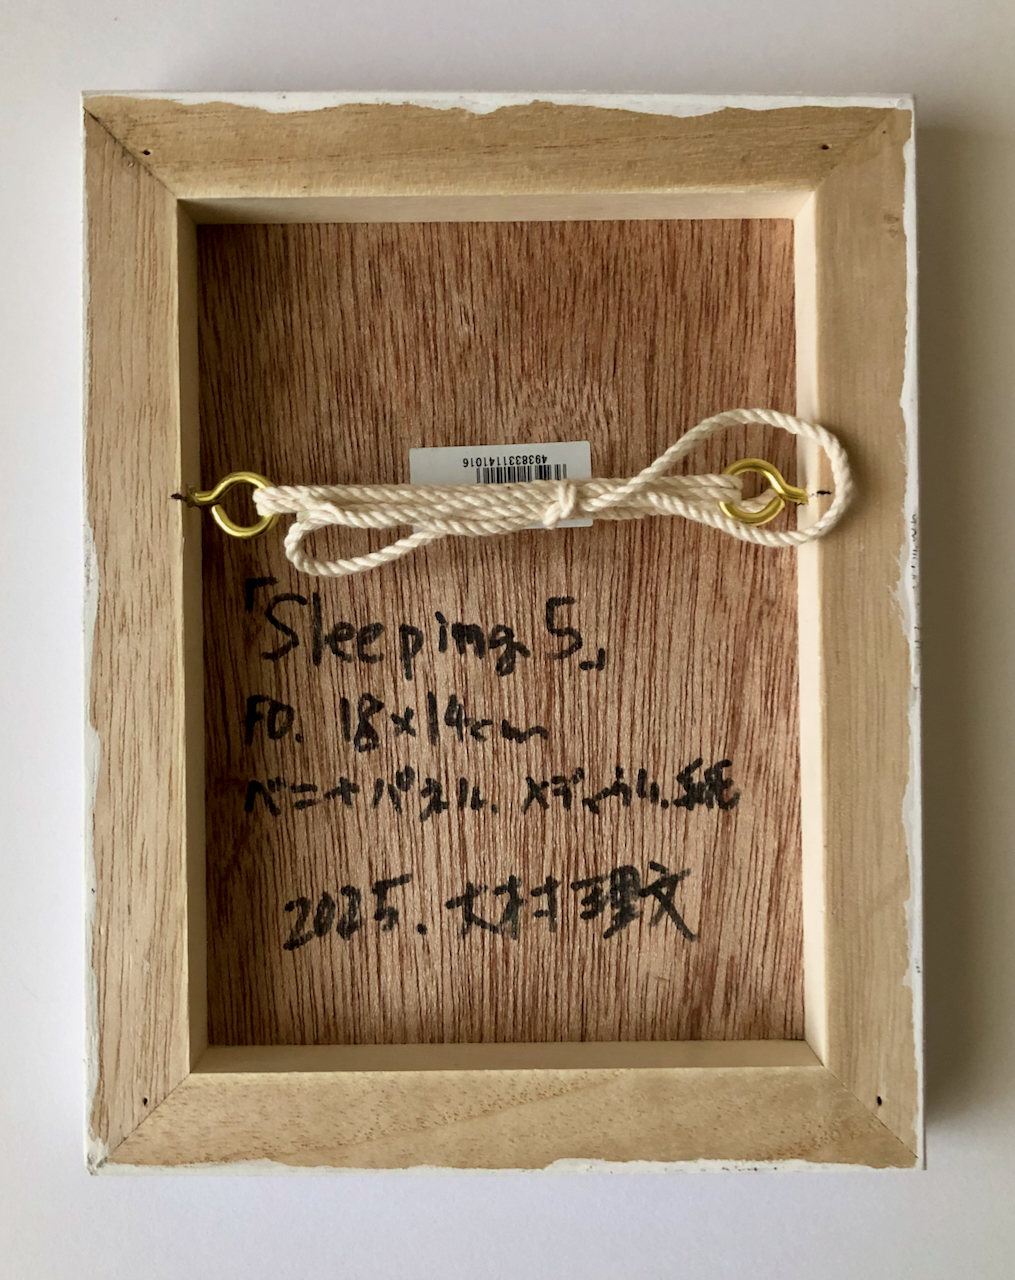 4938331141016
「Sleeping 5」
F0. 18×14cm
ベニヤパネル. メディウム. 紙
2025. 大村理文